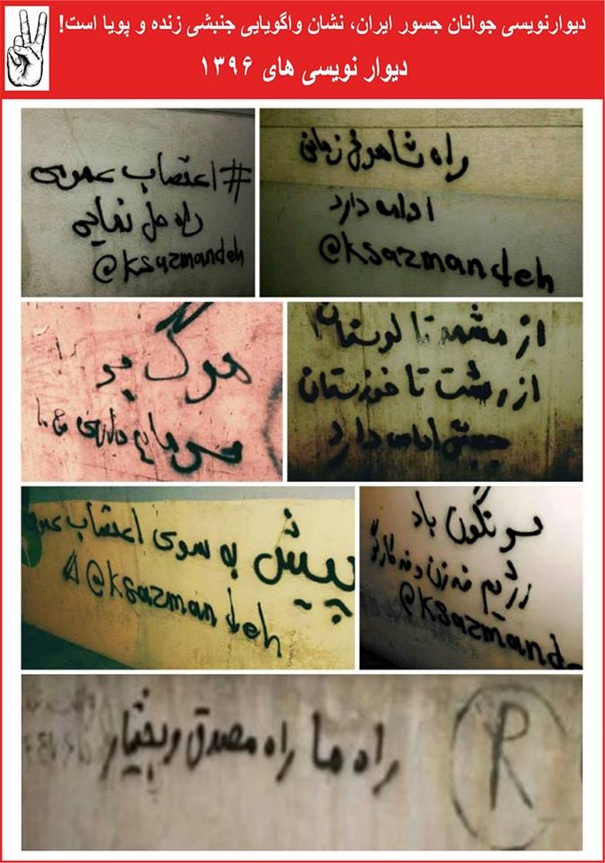 دیوارنویسی جوانان جسور ایران، نشان واگویایی جنبشی زنده و پویا است!
دیوار نویسی های ۱۳۹۶
راه شاهرخ زمانی
ادامه دارد
@ksazmandeh
#اعتصاب عمومی
راه حل نهایی
@ksazmandeh
از مشهد تا لرستان
از رشت تا خوزستان
جنبش ادامه دارد
مرگ بر
سرمایه داری
سرنگون باد
رژیم ضد زن و ضد کارگر
@ksazmand
پیش به سوی اعتصاب عمو
@ksazmandeh
R
راه ما راه مصدق و بختیار